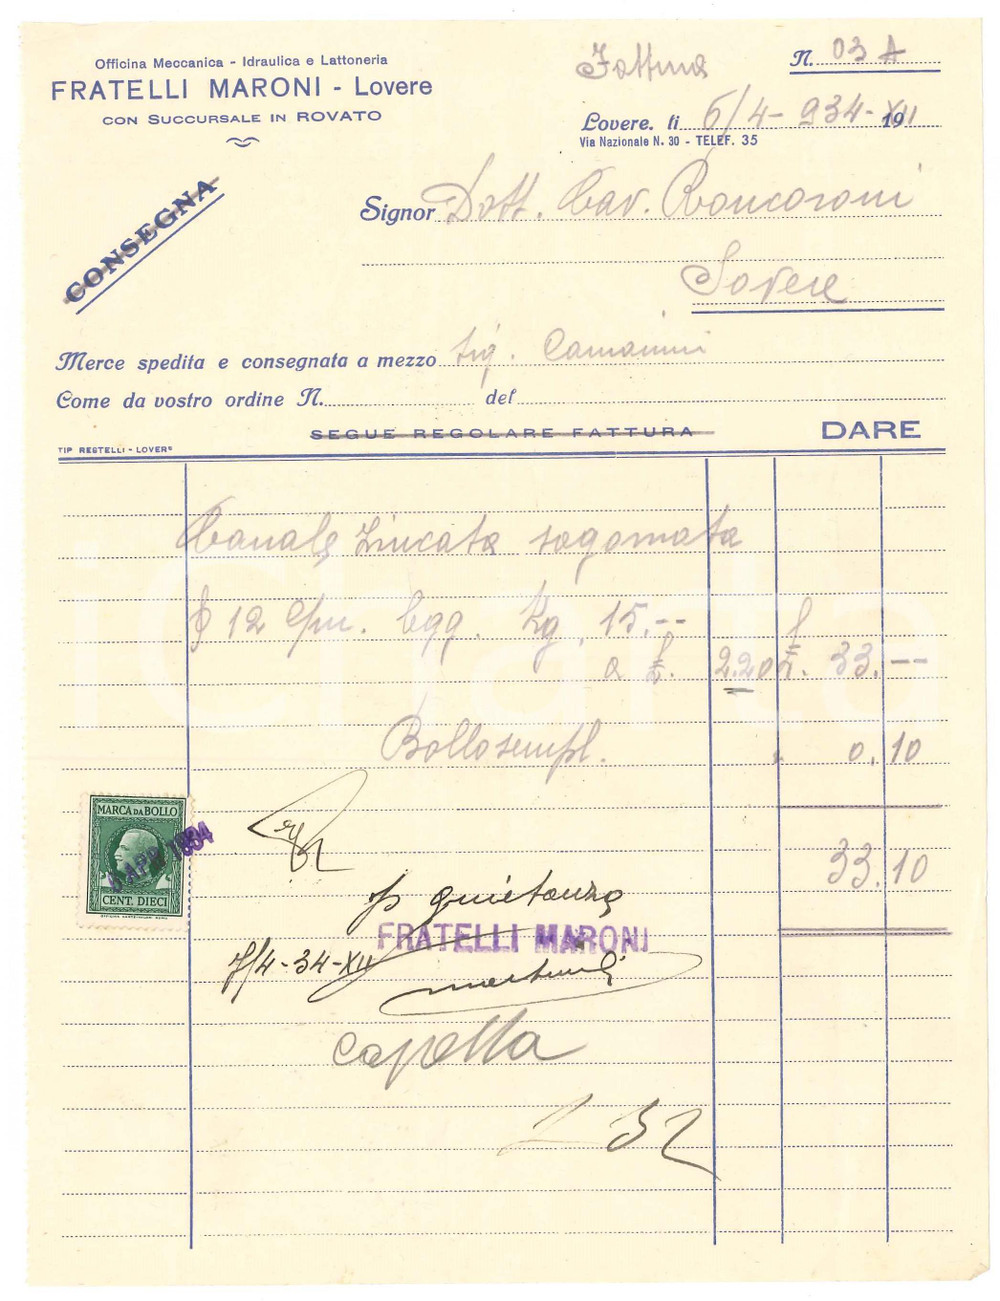 Officina Meccanica - Idraulica e Lattoneria
FRATELLI MARONI - Lovere
CON SUCCURSALE IN ROVATO
Fattura
N. 03 A
Lovere. li 6/4-934-XII 19
Via Nazionale N. 30 - TELEF. 35
CONSEGNA
Signor Dott. Cav. Roncoroni
Sovere
Merce spedita e consegnata a mezzo sig. Camanini
Come da vostro ordine N. del
SEGUE REGOLARE FATTURA
DARE
TIP RESTELLI - LOVERE
Canale Zincata sagomata
12 c/m. Kg. 15.--
a £. 2.20 £. 33.--
Bollo sempl. 0.10
MARCA DA BOLLO
6 APR 1934
CENT. DIECI
33.10
p quietanza
FRATELLI MARONI
7/4-34-XII
Capella
32
iCharta